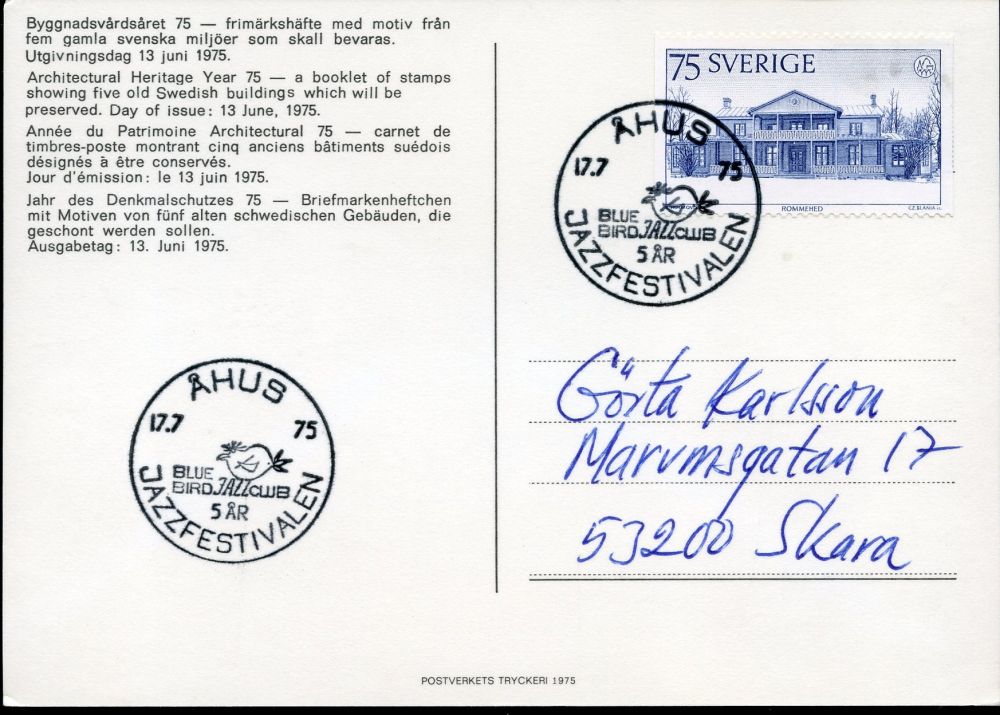 Byggnadsvårdsåret 75 — frimärkshäfte med motiv från
fem gamla svenska miljöer som skall bevaras.
Utgivningsdag 13 juni 1975.
Architectural Heritage Year 75 — a booklet of stamps
showing five old Swedish buildings which will be
preserved. Day of issue: 13 June, 1975.
Année du Patrimoine Architectural 75 — carnet de
timbres-poste montrant cinq anciens bâtiments suédois
désignés à être conservés.
Jour d'émission: le 13 juin 1975.
Jahr des Denkmalschutzes 75 — Briefmarkenheftchen
mit Motiven von fünf alten schwedischen Gebäuden, die
geschont werden sollen.
Ausgabetag: 13. Juni 1975.
75 SVERIGE
ROMMEHED
CZ.SLANIA sc.
ÅHUS
17.7 75
BLUE
BIRD JAZZ CLUB
5 ÅR
JAZZFESTIVALEN
ÅHUS
17.7 75
BLUE
BIRD JAZZ CLUB
5 ÅR
JAZZFESTIVALEN
Gösta Karlsson
Marumsgatan 17
53200 Skara
POSTVERKETS TRYCKERI 1975